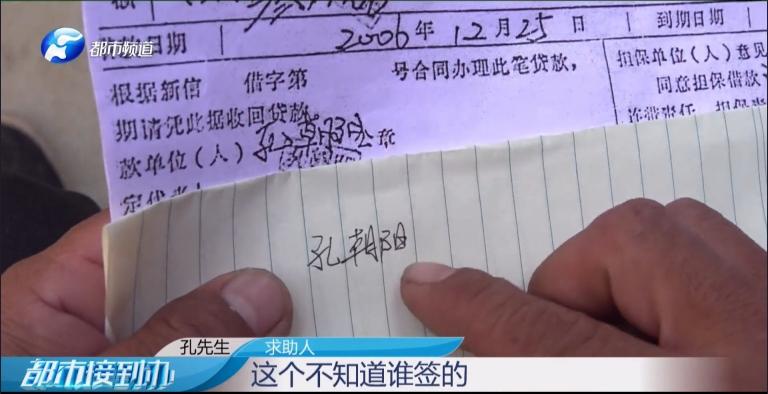 额
都市频道
日期 2006年12月25日 到期日期
根据新信 借字第 号合同办理此笔贷款， 担保单位(人)意见
期请凭此据收回贷款 同意担保借款
款单位(人) 孔朝阳 章
孔朝阳
孔先生 求助人
都市接到办 这个不知道谁签的